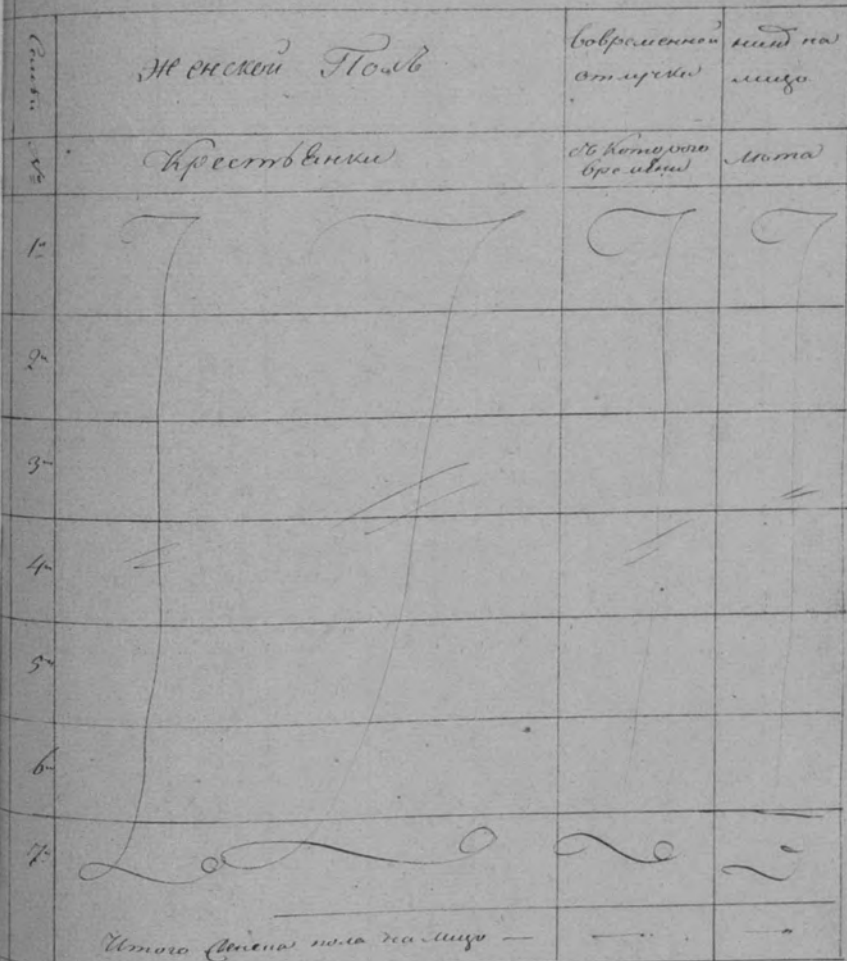 Женской Полъ
вовременной отлучки
ныне на лицо
№
Крестьянки
съ Которого времени
лѣта
1й
2й
3й
4й
5й
6й
7й
Итого женска пола на лицо —